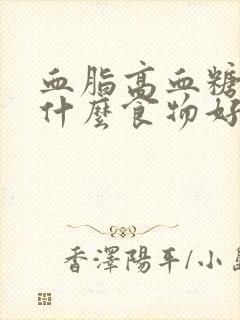 血脂高血糖
什麼食物好
香澤陽平/小